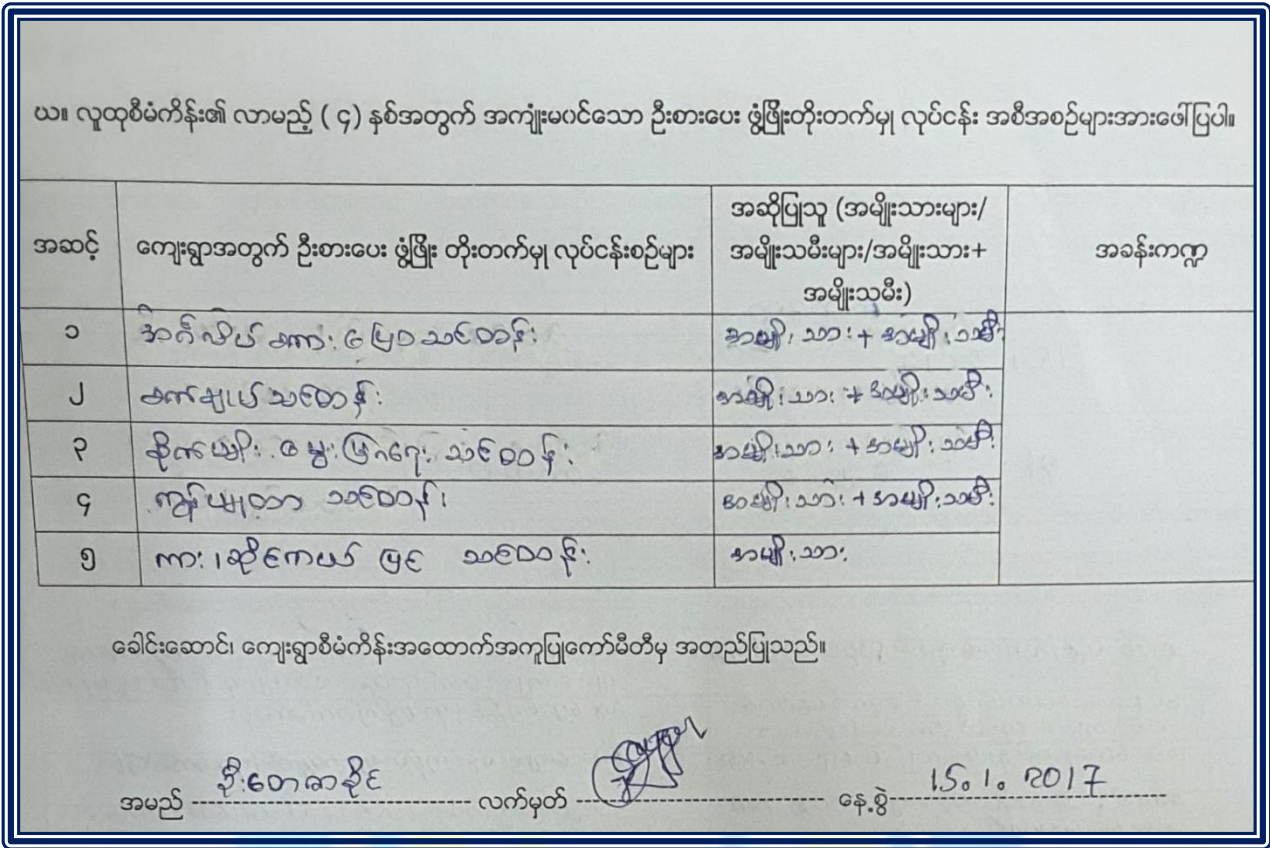 ဃ။ လူထုစီမံကိန်း၏ လာမည့် ( ၄ ) နှစ်အတွက် အကျုံးမဝင်သော ဦးစားပေး ဖွံ့ဖြိုးတိုးတက်မှု လုပ်ငန်း အစီအစဉ်များအားဖေါ်ပြပါ။
အဆင့် ကျေးရွာအတွက် ဦးစားပေး ဖွံ့ဖြိုး တိုးတက်မှု လုပ်ငန်းစဉ်များ အဆိုပြုသူ (အမျိုးသားများ/ အမျိုးသမီးများ/အမျိုးသား+ အမျိုးသမီး) အခန်းကဏ္ဍ
၁ အင်္ဂလိပ် စကားပြော သင်တန်း အမျိုးသား + အမျိုးသမီး
၂ စက်ချုပ် သင်တန်း အမျိုးသား + အမျိုးသမီး
၃ စိုက်ပျိုး မွေးမြူရေး သင်တန်း အမျိုးသား + အမျိုးသမီး
၄ ကွန်ပျူတာ သင်တန်း အမျိုးသား + အမျိုးသမီး
၅ ကား၊ ဆိုင်ကယ် ပြင် သင်တန်း အမျိုးသား
ခေါင်းဆောင်၊ ကျေးရွာစီမံကိန်းအထောက်အကူပြုကော်မီတီမှ အတည်ပြုသည်။
အမည် ဦးတေဇာခိုင် လက်မှတ် နေ့စွဲ 15.1.2017